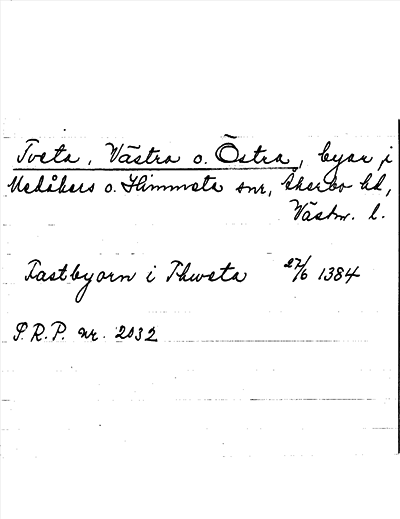 Tveta, Västra o. Östra, byar i
Medåkers o. Himmeta snr, Åkerbo hd,
Västm. l.
Fastbyorn i Thweta 27/6 1384
S.R.P. nr. 2032